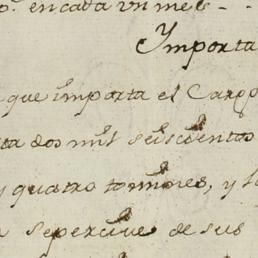 en cada un mes
Ymporta
que importa el Cargo
ta dos mil seiscientos
y quatro tomines, y
se percive de sus